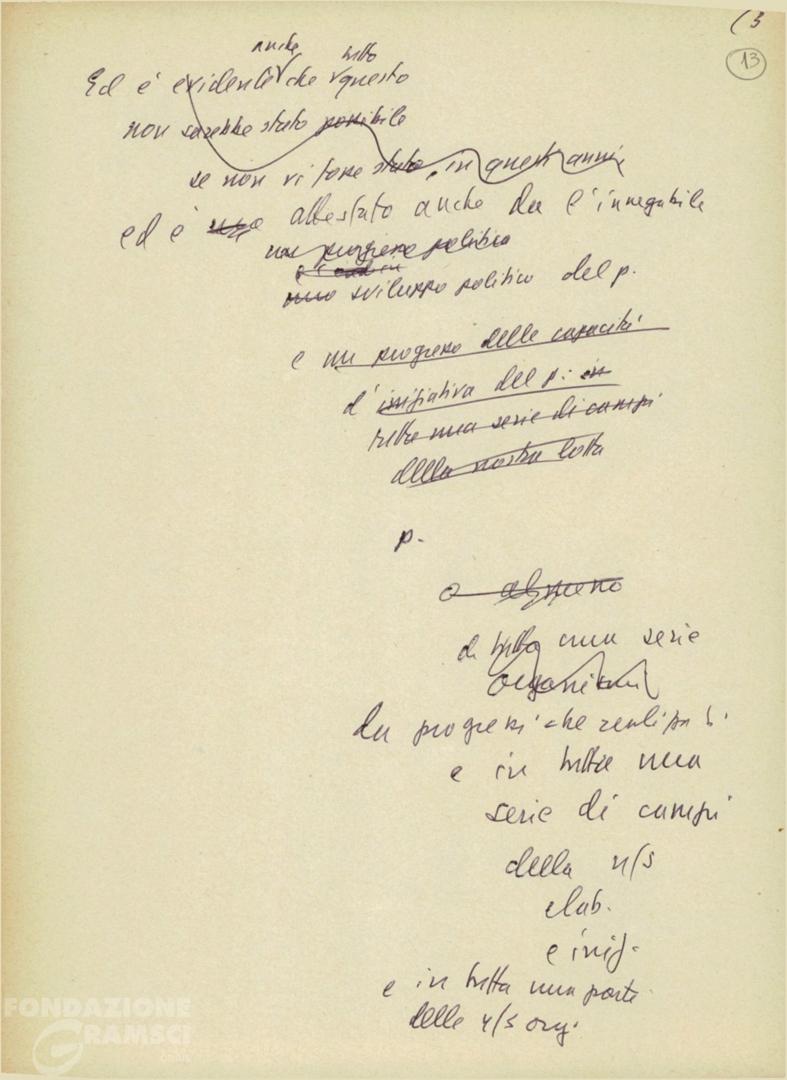 13
13
anche tutto
Ed è evidente che questo
non sarebbe stato possibile
se non vi fosse stato, in questi anni,
ed è attestato anche da l'innegabile
un progresso politico
uno sviluppo politico del p.
e un progresso delle capacità
d'iniziativa del p. in
tutta una serie di campi
della nostra lotta
p.
o almeno
di tutta una serie
organismi
da progressi che realizza
e in tutta una
serie di campi
della n/s
elab.
e iniz.
e in tutta una parte
delle n/s org.
FONDAZIONE
GRAMSCI